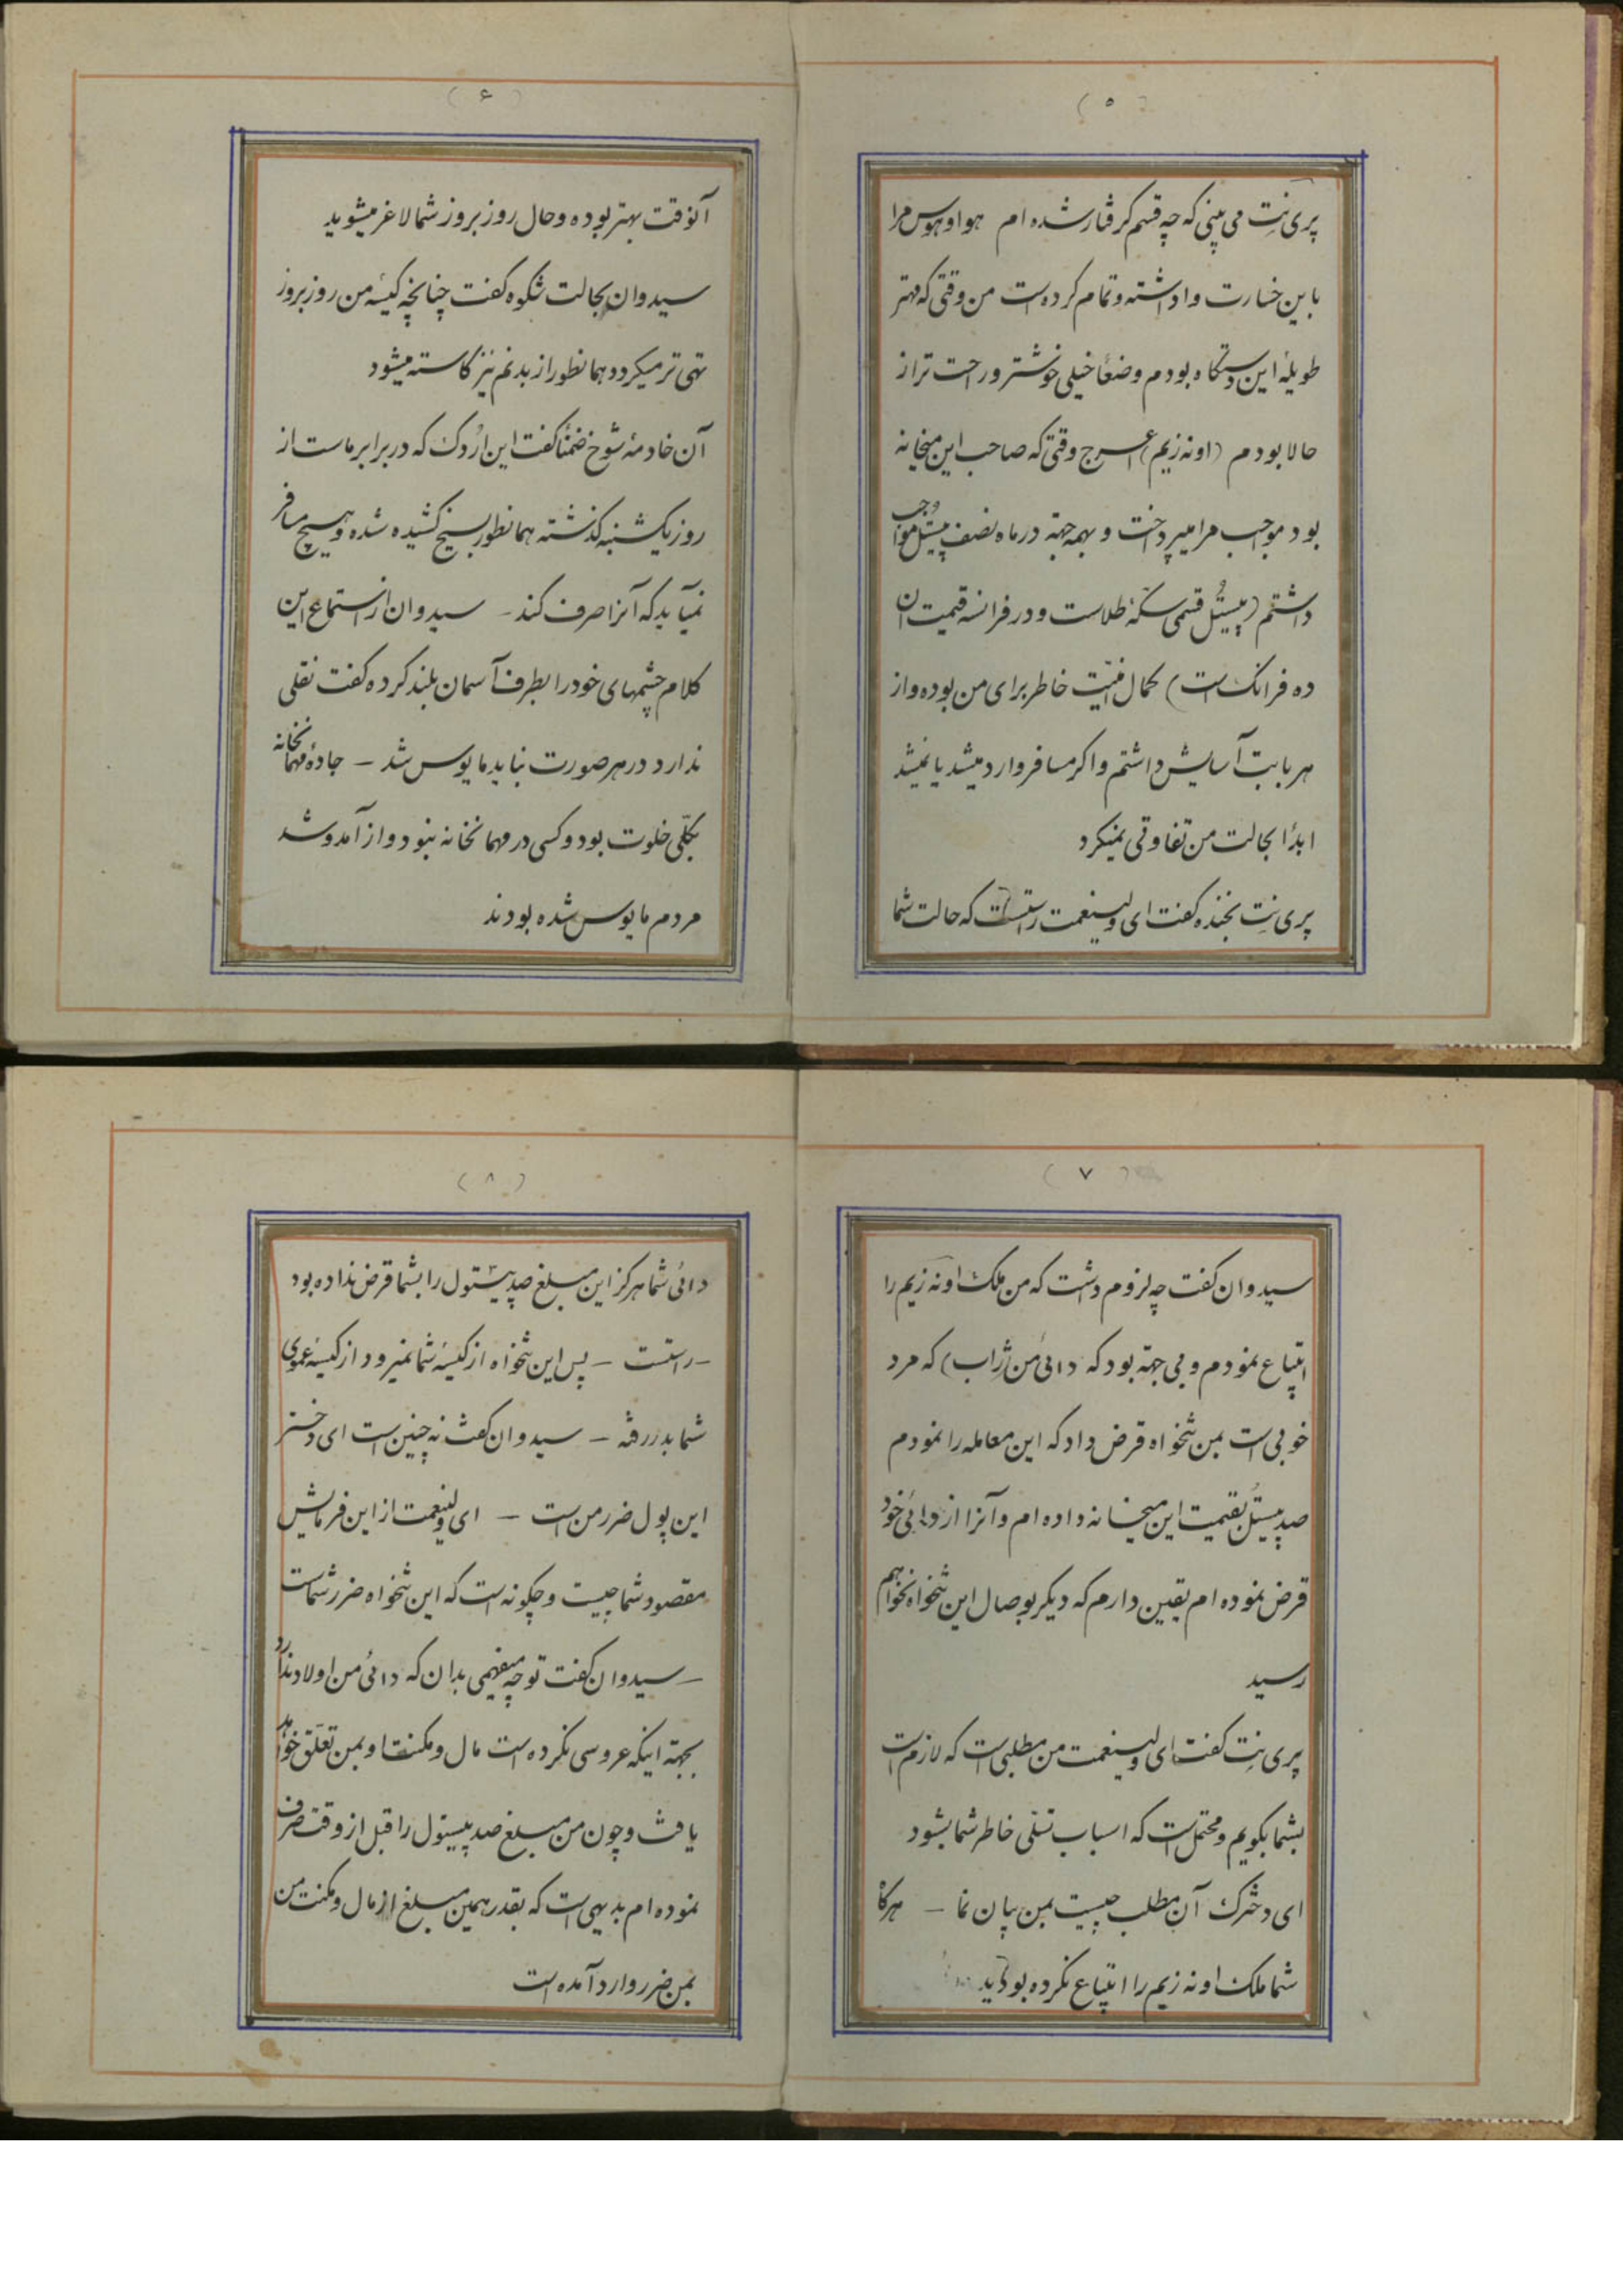 (۵)
پری نِت می بینی که چه قسم گرفتار شده ام هوا و هوس مرا
باین خسارت واداشته و تمام کرده است من وقتی که مهتر
طویلهٔ این دستگاه بودم وضعاً خیلی خوشتر و راحت تر از
حالا بودم (اونه زیم) اعرج وقتی که صاحب این میخانه
بود موجب مرا میپرداخت و بهمه جهة در ماه نصف پیستُل مواجب
داشتم (پیستُل قسمی سکهٔ طلاست و در فرانسه قیمت ان
ده فرانک است) کمال امنیّت خاطر برای من بوده و از
هر بابت آسایش داشتم و اکر مسافر وارد میشد یا نمیشد
ابدًا بحالت من تفاوتی نمیکرد
پری نِت بخنده کفت ای ولینعمت راستست که حالت شما
(۶)
آنوقت بهتر بوده و حال روز بروز شما لاغر میشوید
سیدوان بحالت شکوه کفت چنانچه کیسهٔ من روز بروز
تهی تر میکردد همانطور از بدنم نیز کاسته میشود
آن خادمهٔ شوخ ضمنًا کفت این اُردک که در برابر ماست از
روز یکشنبه کذشته همانطور بسیخ کشیده شده و هیچ مسافر
نمیآید که آنرا صرف کند – سیدوان از استماع این
کلام چشمهای خود را بطرف آسمان بلند کرده کفت نقلی
ندارد در هر صورت نباید مایوس شد – جادهٔ مهمانخانه
بکلّی خلوت بود و کسی در مهمانخانه نبود و از آمد و شد
مردم مایوس شده بودند
(۷)
سیدوان کفت چه لزوم داشت که من ملک اونه زیم را
ابتیاع نمودم و بی جهة بود که دائی من ژِراب) که مرد
خوبی است بمن تنخواه قرض داد که این معامله را نمودم
صد پیستُل بقیمت این میخانه داده ام و آنرا از دائی خود
قرض نموده ام یقین دارم که دیکر بوصال این تنخواه نخواهم
رسید
پری نِت کفت ای ولینعمت من مطلبی است که لازم است
بشما بکویم و محتمل است که اسباب تسلّی خاطر شما بشود
ای دخترک آن مطلب چیست بمن بیان نما – هرکاه
شما ملک اونه زیم را ابتیاع نکرده بودید
(۸)
دائی شما هرکز این مبلغ صد پیستول را بشما قرض نداده بود
– راستست – پس این تنخواه از کیسهٔ شما نمیرود از کیسهٔ عموی
شما بدر رفته – سیدوان کفت نه چنین است ای دختر
این پول ضرر من است – ای ولینعمت از این فرمایش
مقصود شما چیست و چکونه است که این تنخواه ضرر شماست
– سیدوان کفت تو چه میفهمی بدان که دائی من اولاد ندارد
بجهة اینکه عروسی نکرده است مال و مکنت او بمن تعلّق خواهد
یافت و چون من مبلغ صد پیستول را قبل از وقت صرف
نموده ام بدیهی است که بقدر همین مبلغ از مال و مکنت من
بمن ضرر وارد آمده است